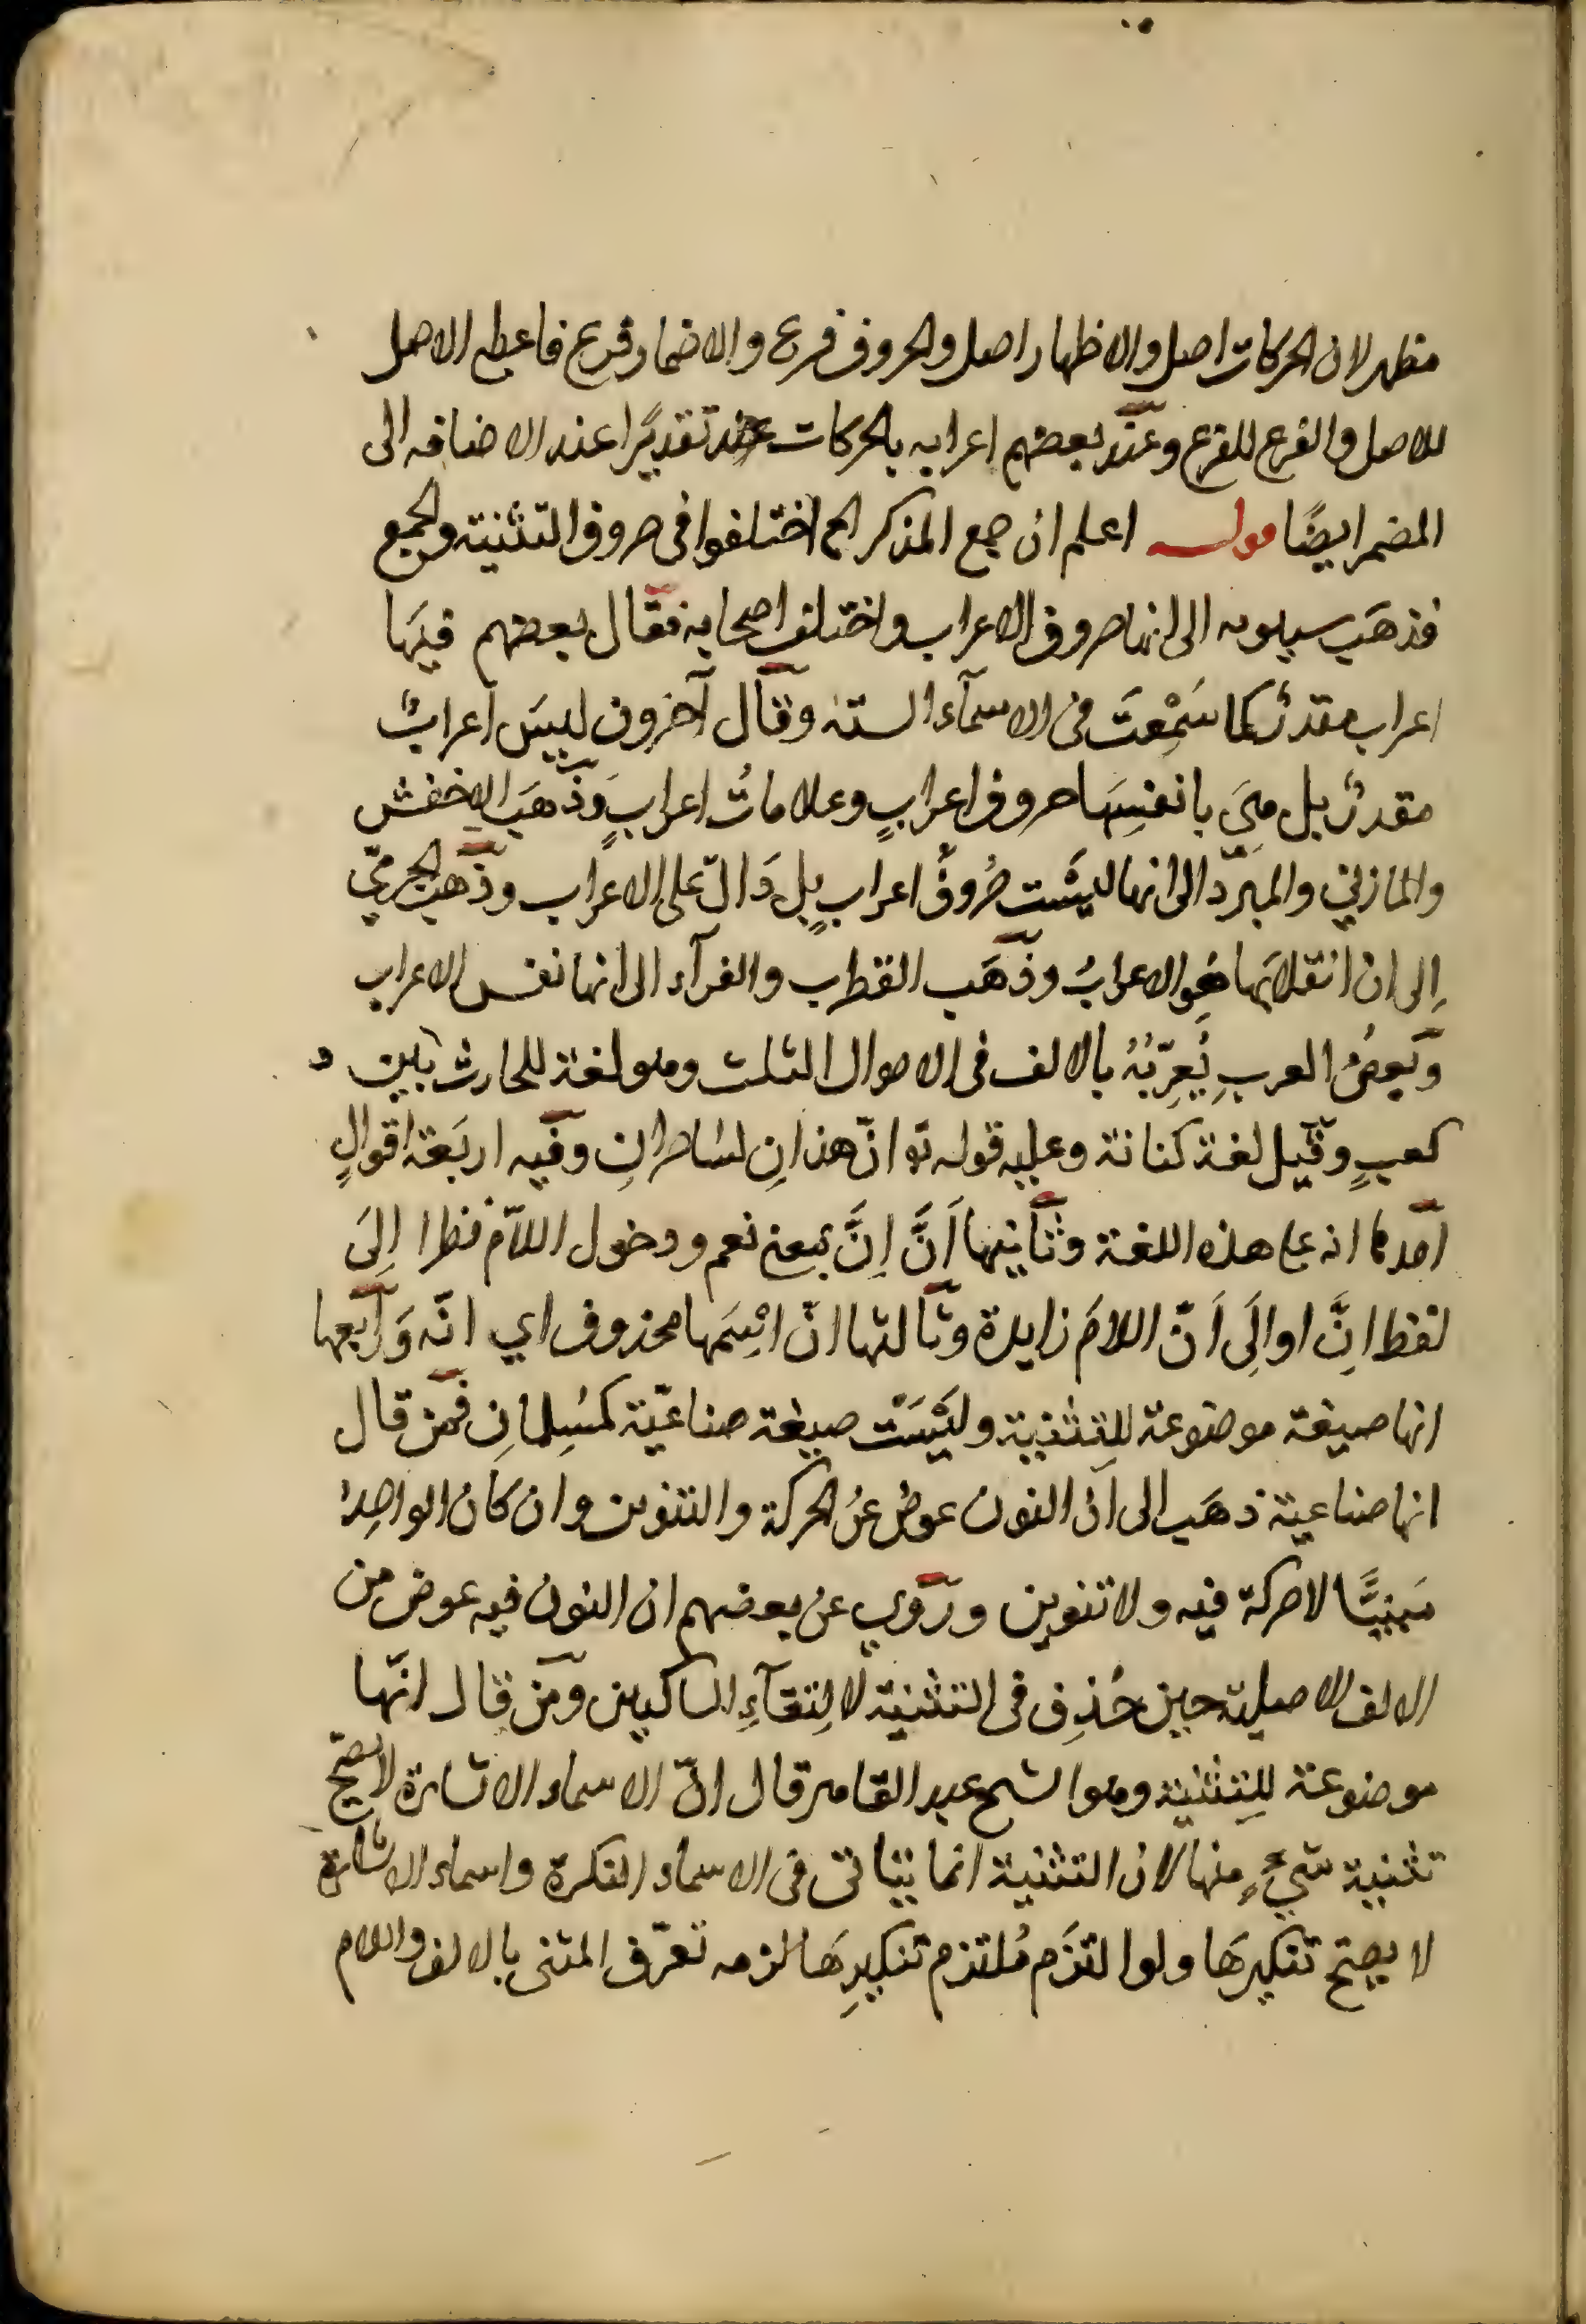 مظهر لان الحركات اصل والاظهار اصل والحروف فرع والاضمار فرع فاعطى الاصل
للاصل والفرع للفرع وعند بعضهم اعرابه بالحركات تقديرًا عند الاضافه الى
المضمر ايضًا قوله اعلم ان جمع المذكر الخ اختلفوا فى حروف التثنية والجمع
فذهَب سيبويه الى انها حروف الاعراب واختلف اصحابه فقال بعضهم فيهَا
اعراب مقدرٌ كما سَمِعْتَ فى الاسمآء الستة وقال آخرون ليسَ اعرابٌ
مقدرٌ بل هِيَ بانفسِهَا حروف اعرابٍ وعلاماتُ اعرابٍ وَذَهَبَ الاخفش
والمازني والمبرّد الى انها ليسَت حُروفَ اعرابٍ بل دَالّ على الاعراب وذهب الجرميّ
اِلى ان انقلابَها هُو الاعرابُ وذهَب القطرب والفرآء الى انها نفس الاعراب
وبعضُ العربِ يُعرِبُهُ بالالف فى الاحوال الثلث وهو لغة للحارث بين
كعبٍ وقيل لغة كنانة وعليه قوله تع انّ هذانِ لسَاحرانِ وفيه اربَعة اقوالٍ
احدها انه على هذه اللغة وثانيها اَنَّ اِنَّ بمعنى نعم ودخول اللاّم نظرا اِلىَ
لفظ اِنَّ او اِلَى اَنّ اللامَ زايدة وثالثها انّ اسْمَها محذوف اي انّه وَرابعها
انها صيغة موضوعة لِلتثنية وليْسَتْ صيغة صناعيّة كمسْلِمانِ فمن قال
انها صناعية ذهَب الى انّ النون عوضٌ عن الحركة والتنوين وان كان الواحِدُ
مَبنيًّا لا حركة فيه ولا تنوين ورُوي عن بعضهم ان النون فيه عوض من
الالف الاصلية حين حُذِف فى التثنية لالِتقآءِ الساكنين ومَن قال انّها
موضوعة لِلتثنية وهو الشيخ عبد القاهر قال انّ الاسماء الاشارة لا يصحّ
تثنية شيءٍ منها لان التثنية انما يتاتى فى الاسماء النكرة واسماء الاشارة
لا يصحّ تنكيرهَا ولو التزَم مُلتزم تنكيرِهَا لزمه تعرّف المثنى بالالف واللام